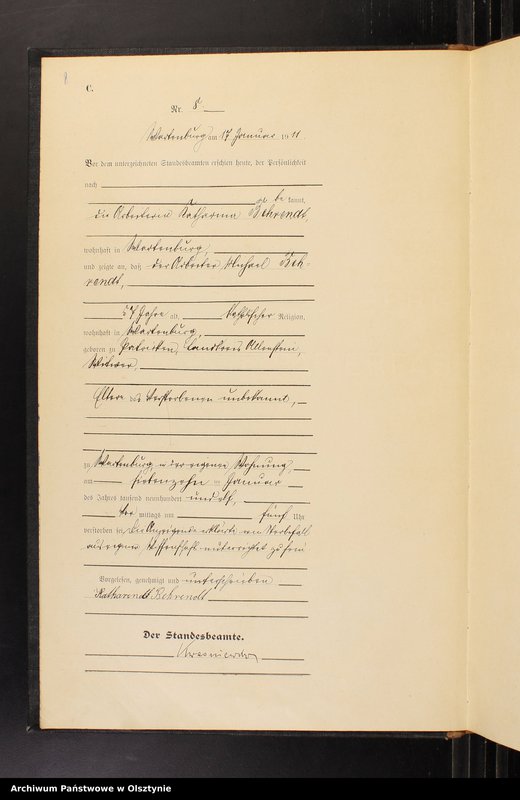 8
C.
Nr. 8
Wartenburg am 17 Januar 1911
Vor dem unterzeichneten Standesbeamten erschien heute, der Persönlichkeit
nach
be kannt,
die Arbeiterin Katharina Behrendt,
wohnhaft in Wartenburg,
und zeigte an, daß der Arbeiter Michael Beh-
rendt,
57 Jahre alt, katholischer Religion,
wohnhaft in Wartenburg,
geboren zu Landkreis Allenstein,
Witwer,
Eltern des Verstorbenen unbekannt,
zu Wartenburg in der eigenen Wohnung
am siebenzehn ten Januar
des Jahres tausend neunhundert und elf,
vor mittags um fünf Uhr
verstorben sei, die Anzeigende erklärte von Sterbefall
aus eigener Wissenschaft unterrichtet zu sein
Vorgelesen, genehmigt und unterschrieben
Behrendt
Der Standesbeamte.
Archiwum Państwowe w Olsztynie